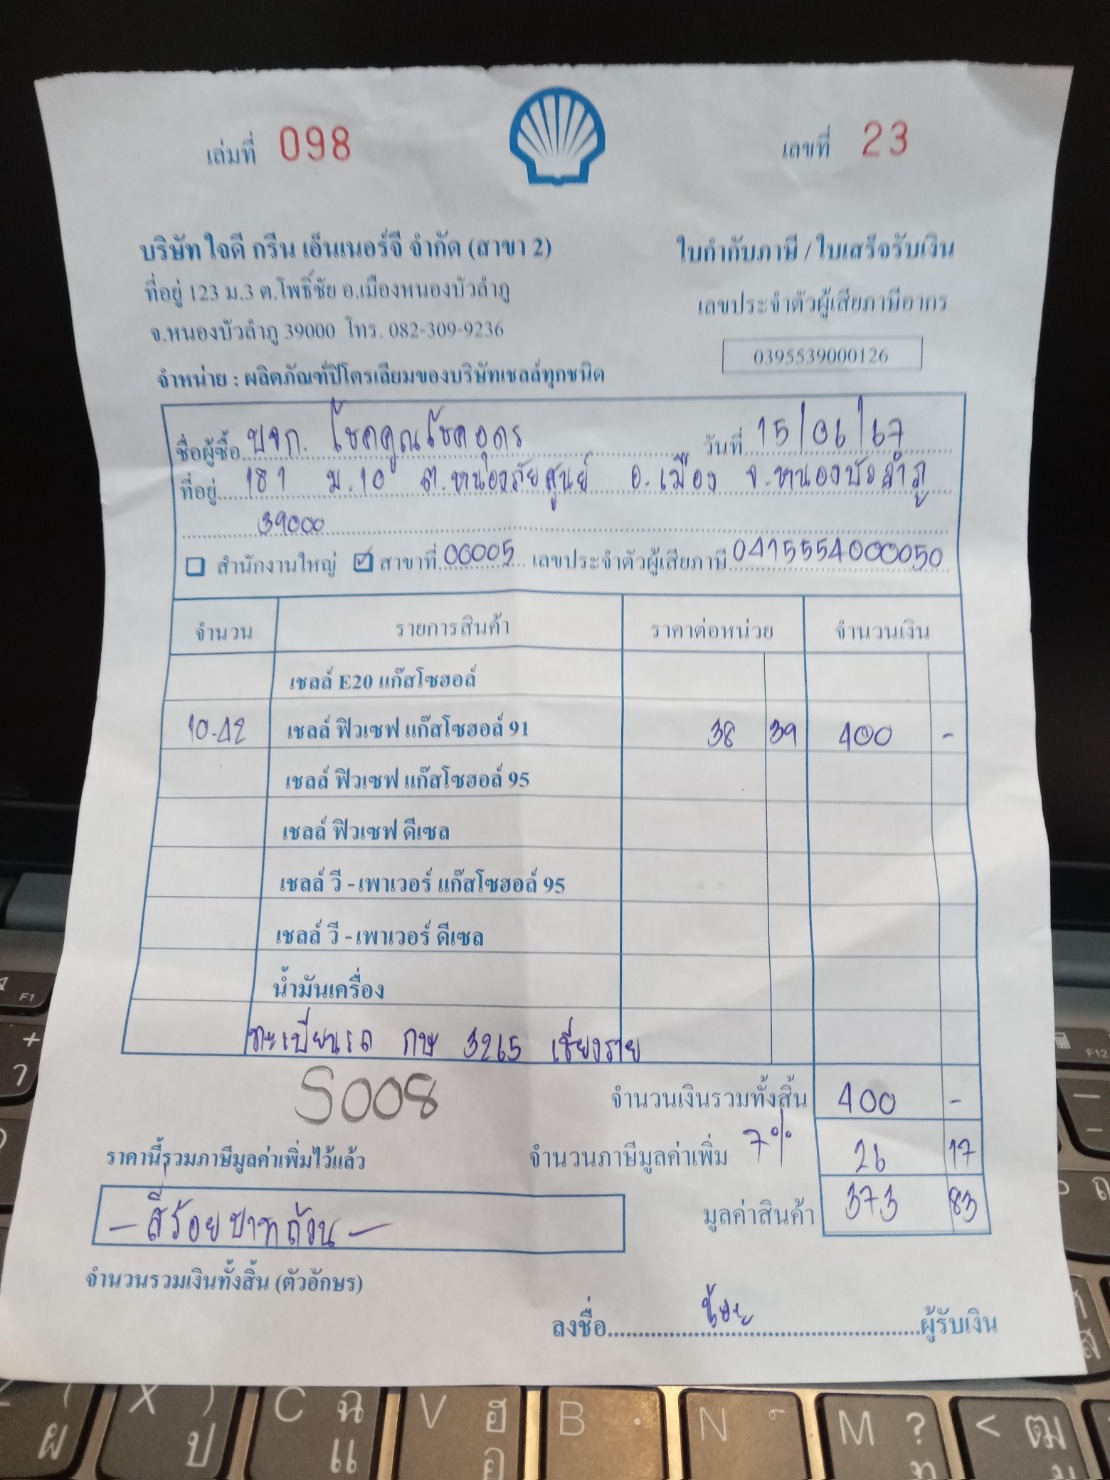 เล่มที่ 098
เลขที่ 23
บริษัท ใจดี กรีน เอ็นเนอร์จี จำกัด (สาขา 2)
ที่อยู่ 123 ม.3 ต.โพธิ์ชัย อ.เมืองหนองบัวลำภู
จ.หนองบัวลำภู 39000 โทร. 082-309-9236
จำหน่าย : ผลิตภัณฑ์ปิโตรเลียมของบริษัทเชลล์ทุกชนิด
ใบกำกับภาษี / ใบเสร็จรับเงิน
เลขประจำตัวผู้เสียภาษีอากร
0395539000126
ชื่อผู้ซื้อ บจก. โชคคูณโชคอุดร วันที่ 15/06/67
ที่อยู่ 181 ม.10 ต.หนองภัยศูนย์ อ.เมือง จ.หนองบัวลำภู
39000
สำนักงานใหญ่ สาขาที่ 00005 เลขประจำตัวผู้เสียภาษี 0415554000050
จำนวน รายการสินค้า ราคาต่อหน่วย จำนวนเงิน
เชลล์ E20 แก๊สโซฮอล์
10.42 เชลล์ ฟิวเซฟ แก๊สโซฮอล์ 91 38 39 400 -
เชลล์ ฟิวเซฟ แก๊สโซฮอล์ 95
เชลล์ ฟิวเซฟ ดีเซล
เชลล์ วี - เพาเวอร์ แก๊สโซฮอล์ 95
เชลล์ วี - เพาเวอร์ ดีเซล
น้ำมันเครื่อง
ทะเบียนรถ กษ 3265 เชียงราย
S008
จำนวนเงินรวมทั้งสิ้น 400 -
ราคานี้รวมภาษีมูลค่าเพิ่มไว้แล้ว
จำนวนภาษีมูลค่าเพิ่ม 7% 26 17
มูลค่าสินค้า 373 83
- สี่ร้อยบาทถ้วน -
จำนวนรวมเงินทั้งสิ้น (ตัวอักษร)
ลงชื่อ ผู้รับเงิน
F1
F12
X ป
C ฉ แ
V ฮ อ
B
N
M ? ท
< ฒ ม
ผ